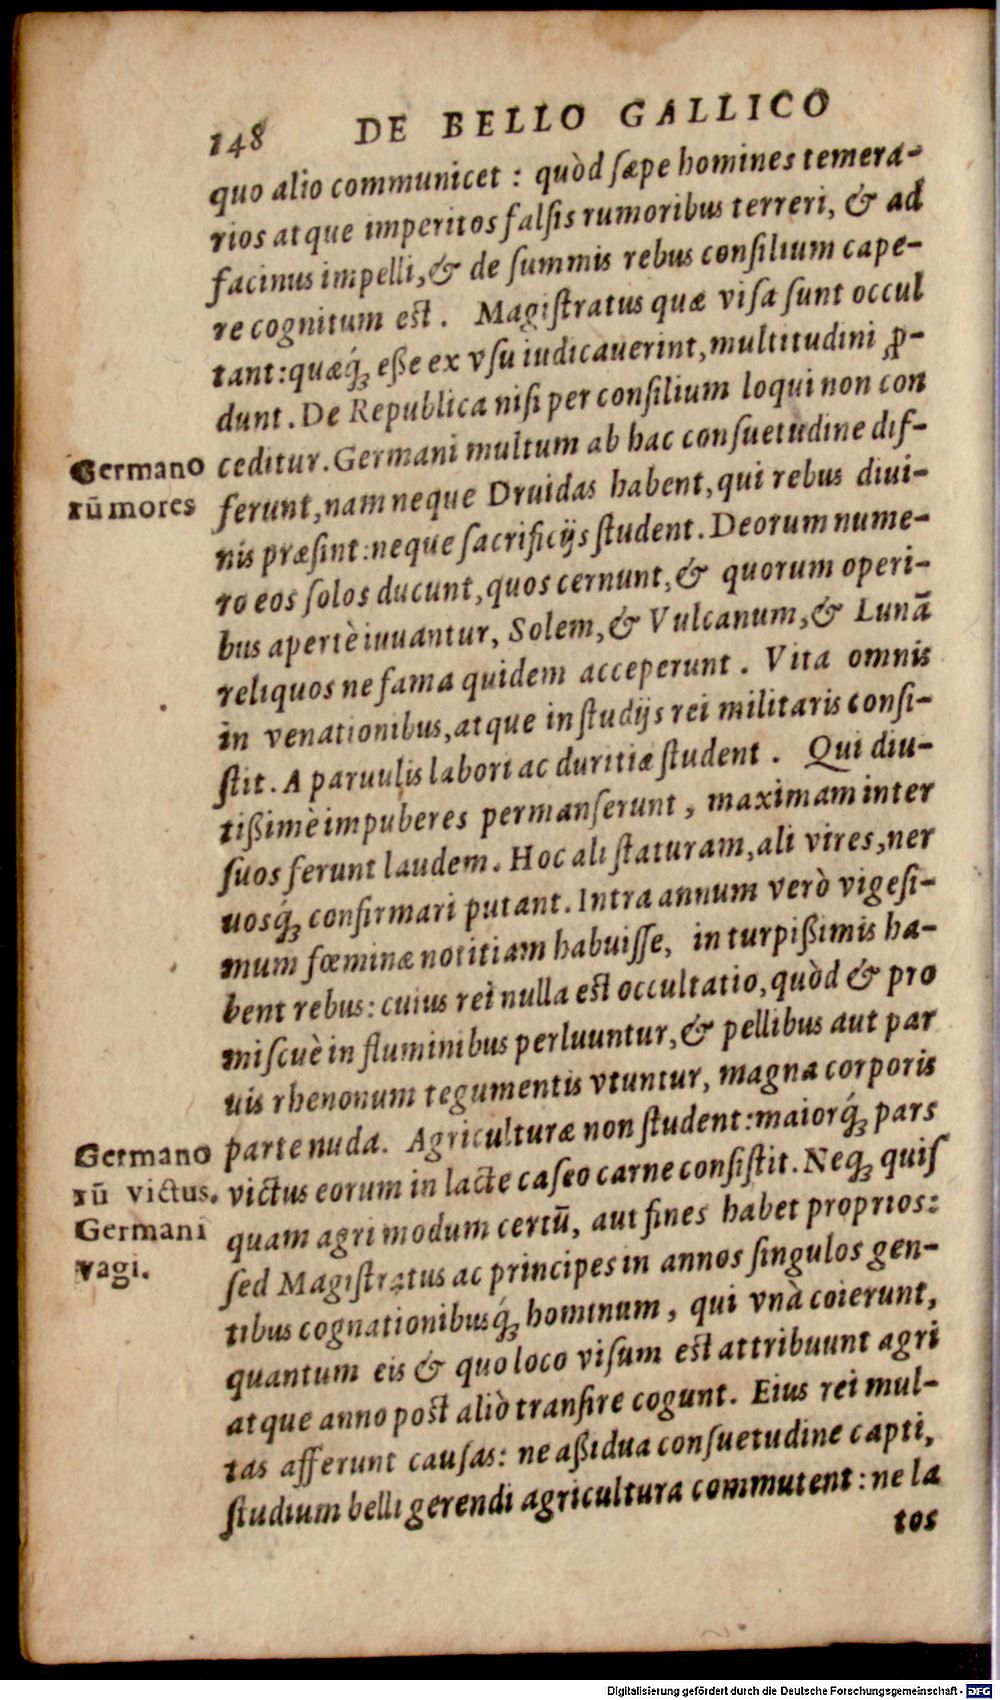 148 DE BELLO GALLICO
quo alio communicet : quòd sæpe homines temera-
rios atque imperitos falsis rumoribus terreri, & ad
facinus impelli, & de summis rebus consilium cape-
re cognitum est . Magistratus quæ visa sunt occul
tant: quæq́ʒ esse ex vsu iudicauerint, multitudini ꝓ-
dunt . De Republica nisi per consilium loqui non con
ceditur . Germani multum ab hac consuetudine dif-
Germano
rū mores
ferunt, nam neque Druidas habent, qui rebus diui-
nis præsint: neque sacrificijs student . Deorum nume-
ro eos solos ducunt, quos cernunt, & quorum operi-
bus apertè iuuantur, Solem, & Vulcanum, & Lunā
reliquos ne fama quidem acceperunt . Vita omnis
in venationibus, atque in studijs rei militaris consi-
stit . A paruulis labori ac duritiæ student . Qui diu-
tißimè impuberes permanserunt , maximam inter
suos ferunt laudem . Hoc ali staturam, ali vires, ner
uosq́ʒ confirmari putant . Intra annum verò vigesi-
mum fœminæ notitiam habuisse, in turpißimis ha-
bent rebus: cuius rei nulla est occultatio, quòd & pro
miscuè in fluminibus perluuntur, & pellibus aut par
uis rhenonum tegumentis vtuntur, magna corporis
parte nuda . Agriculturæ non student: maiorq́ʒ pars
Germano
rū victus.
victus eorum in lacte caseo carne consistit . Neqʒ quis
quam agri modum certū, aut fines habet proprios:
Germani
vagi.
sed Magistratus ac principes in annos singulos gen-
tibus cognationibusq́ʒ hominum , qui vnà coierunt,
quantum eis & quo loco visum est attribuunt agri
atque anno post aliò transire cogunt . Eius rei mul-
tas afferunt causas: ne aßidua consuetudine capti,
studium belli gerendi agricultura commutent : ne la
tos
Digitalisierung gefördert durch die Deutsche Forschungsgemeinschaft - DFG